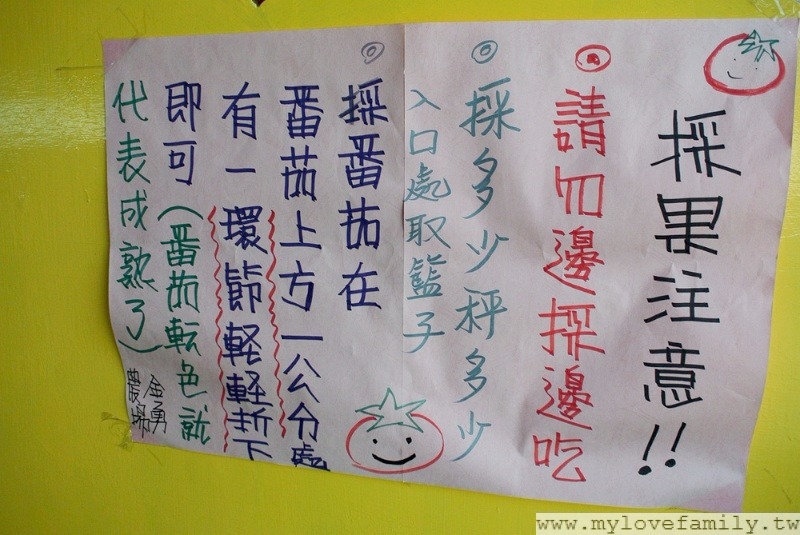 採果注意!!
◎請勿邊採邊吃
◎採多少秤多少
入口處取籃子
◎採番茄在
番茄上方一公分處
有一環節輕輕折下
即可(番茄転色就
代表成熟了)
金勇
農場
www.mylovefamily.tw